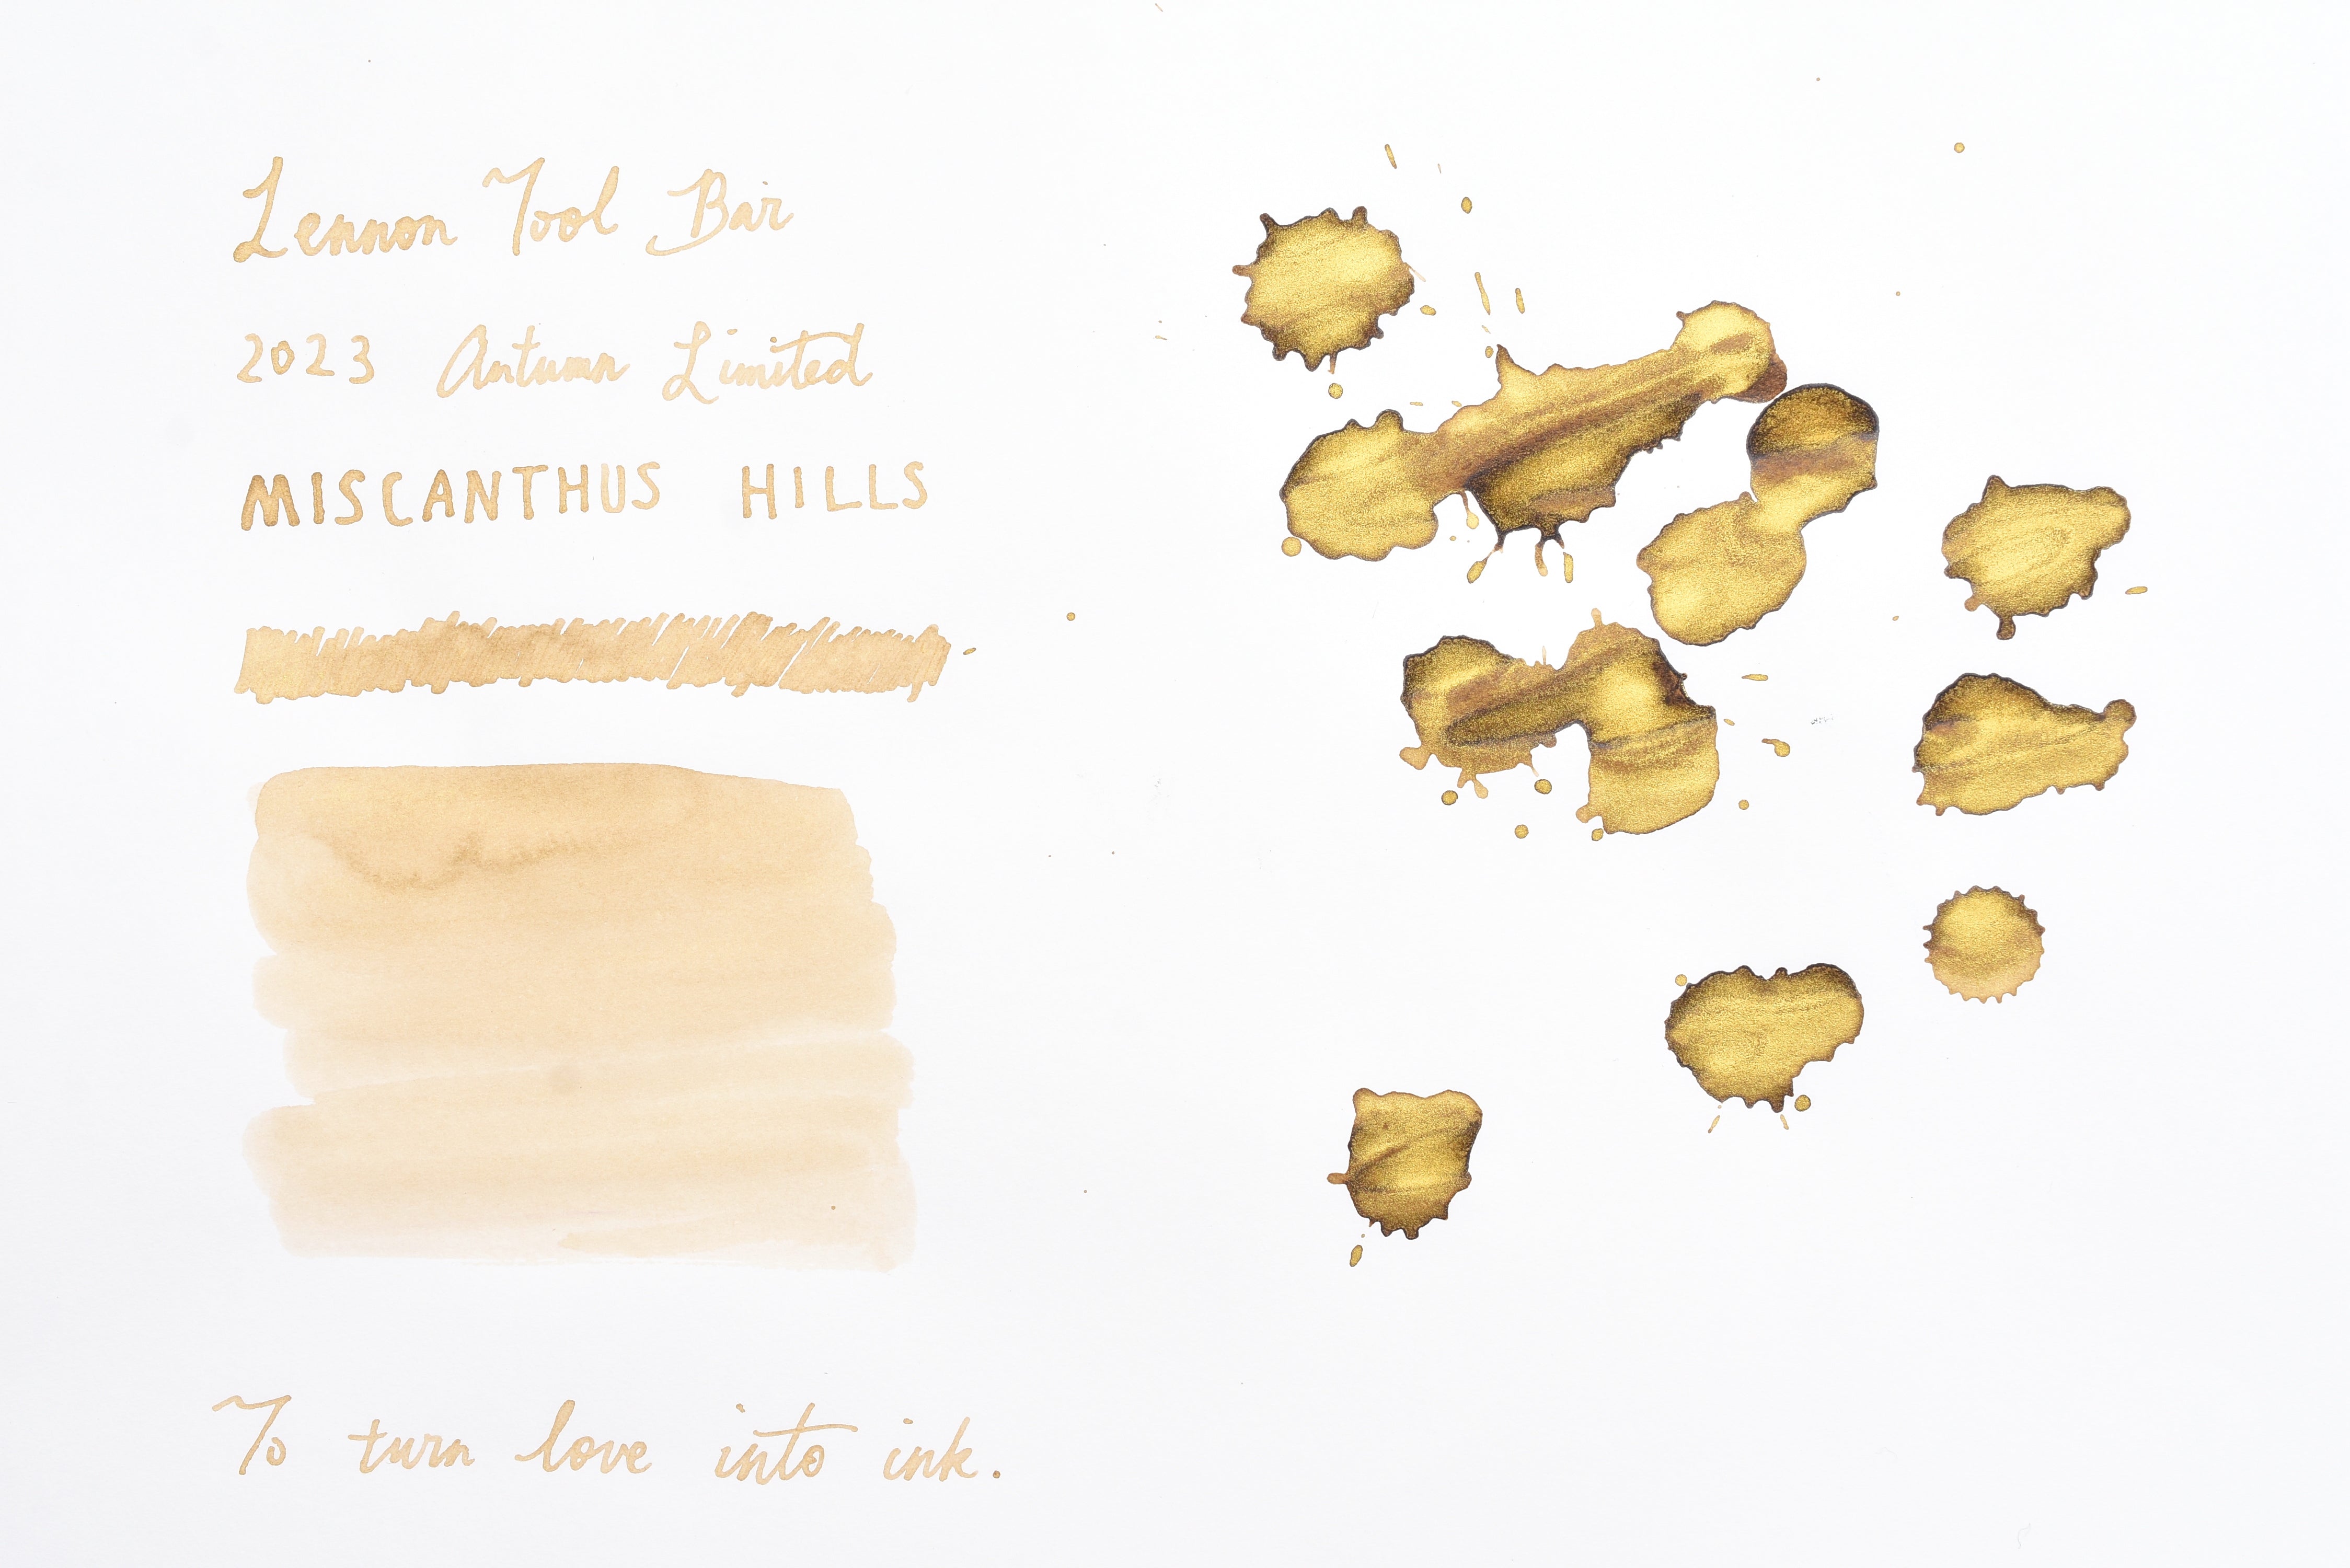 Lennon Tool Bar
2023 Autumn Limited
MISCANTHUS HILLS
To turn love into ink.